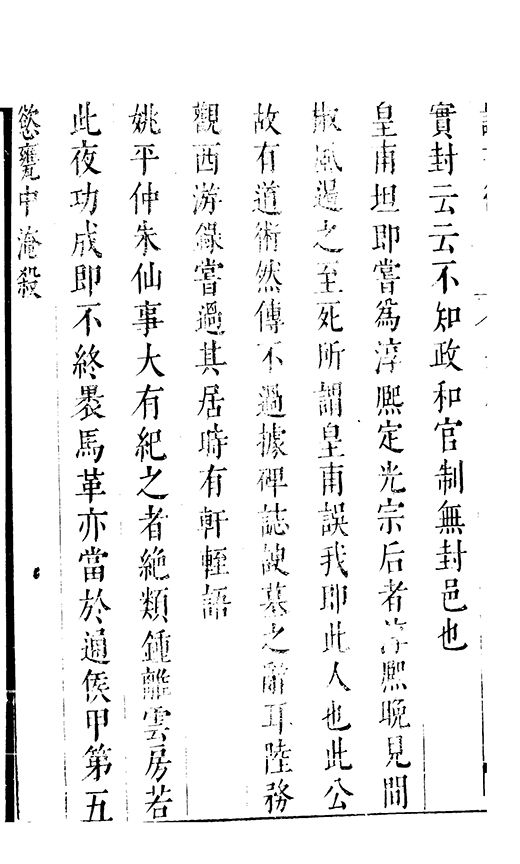 實封云云不知政和官制無封邑也
皇甫坦即嘗爲淳熈定光宗后者淳熈晚見間
故風遏之至死所謂皇甫誤我即此人也此公
故有道術然傳不過據碑誌諛墓之辭耳陸務
觀西游錄嘗過其居時有軒輊語
姚平仲朱仙事大有紀之者絶類鍾離雲房若
此夜功成即不終褁馬革亦當於通侯甲第五
慾甕中淹殺